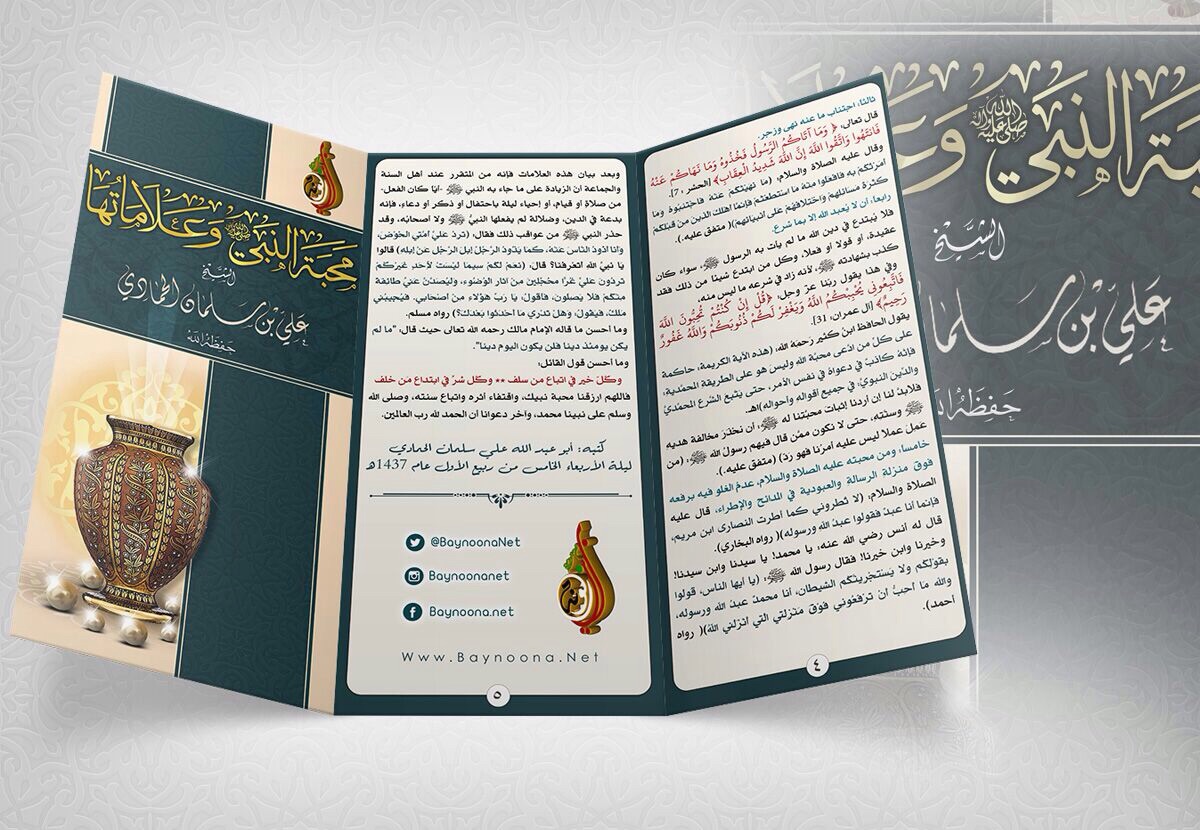 محبة النبي ﷺ وعلاماتها
الشيخ
علي بن سلمان الحمادي
حفظه الله
ثالثا، اجتناب ما عنه نهى وزجر.
قال تعالى، ﴿وَمَا آتَاكُمُ الرَّسُولُ فَخُذُوهُ وَمَا نَهَاكُمْ عَنْهُ
فَانتَهُوا وَاتَّقُوا اللَّهَ إِنَّ اللَّهَ شَدِيدُ الْعِقَابِ﴾ [الحشر، 7].
وقال عليه الصلاة والسلام، (ما نهيتكم عنه فاجتنبوه وما
أمرتكم به فافعلوا منه ما استطعتم فإنما أهلك الذين من قبلكم
كثرة مسائلهم واختلافهم على أنبيائهم)( متفق عليه.).
رابعا، أن لا يُعبد الله إلا بما شرع.
فلا يُبتدع في دين الله ما لم يأت به الرسول ﷺ، سواء كان
عقيدة، أو قولا أو فعلا، وكل من ابتدع شيئا من ذلك فقد
كذب بشهادته ﷺ، لأنه زاد في شرعه ما ليس منه.
وفي هذا يقول ربنا عز وجل، ﴿قُلْ إِن كُنتُمْ تُحِبُّونَ اللَّهَ
فَاتَّبِعُونِي يُحْبِبْكُمُ اللَّهُ وَيَغْفِرْ لَكُمْ ذُنُوبَكُمْ وَاللَّهُ غَفُورٌ
رَحِيمٌ﴾ [آل عمران، 31].
يقول الحافظ ابن كثير رحمه الله، (هذه الآية الكريمة، حاكمة
على كل من ادعى محبة الله وليس هو على الطريقة المحمدية،
فإنه كاذب في دعواه في نفس الأمر، حتى يتبع الشرع المحمدي
والدين النبوي، في جميع أقواله وأحواله)اهـ.
فلابد لنا إن أردنا إثبات محبتنا له ﷺ، أن نحذر مخالفة هديه
ﷺ وسنته، حتى لا نكون ممن قال فيهم رسول الله ﷺ، (من
عمل عملا ليس عليه أمرنا فهو رد) (متفق عليه.).
خامسا، ومن محبته عليه الصلاة والسلام، عدم الغلو فيه برفعه
فوق منزلة الرسالة والعبودية في المدائح والإطراء، قال عليه
الصلاة والسلام، (لا تطروني كما أطرت النصارى ابن مريم،
فإنما أنا عبد فقولوا عبد الله ورسوله)( رواه البخاري).
قال له أنس رضي الله عنه، يا محمد! يا سيدنا وابن سيدنا!
وخيرنا وابن خيرنا! فقال رسول الله ﷺ، (يا أيها الناس، قولوا
بقولكم ولا يستجرينكم الشيطان، أنا محمد عبد الله ورسوله،
والله ما أحب أن ترفعوني فوق منزلتي التي أنزلني الله)( رواه
أحمد).
٤
وبعد بيان هذه العلامات فإنه من المتقرر عند أهل السنة
والجماعة أن الزيادة على ما جاء به النبي ﷺ -أيًا كان الفعل-
من صلاة أو قيام، أو إحياء ليلة باحتفال أو ذكر أو دعاء، فإنه
بدعة في الدين، وضلالة لم يفعلها النبي ﷺ ولا أصحابه، وقد
حذر النبي ﷺ من عواقب ذلك فقال، (ترد علي أمتي الحوض،
وأنا أذود الناس عنه، كما يذود الرجل إبل الرجل عن إبله) قالوا
يا نبي الله أتعرفنا؟ قال، (نعم لكم سيما ليست لأحد غيركم
تردون علي غرًا محجلين من آثار الوضوء، وليصدن عني طائفة
منكم فلا يصلون، فأقول، يا رب هؤلاء من أصحابي، فيجيبني
ملك، فيقول، وهل تدري ما أحدثوا بعدك؟) رواه مسلم.
وما أحسن ما قاله الإمام مالك رحمه الله تعالى حيث قال، "ما لم
يكن يومئذ دينا فلن يكون اليوم دينا".
وما أحسن قول القائل:
وكل خير في اتباع من سلف ** وكل شر في ابتداع من خلف
فاللهم ارزقنا محبة نبيك، واقتفاء أثره واتباع سنته، وصلى الله
وسلم على نبينا محمد، وآخر دعوانا أن الحمد لله رب العالمين.
كتبه: أبو عبد الله علي سلمان الحمادي
ليلة الأربعاء الخامس من ربيع الأول عام 1437هـ
@BaynoonaNet
Baynoonanet
Baynoona.net
Www.Baynoona.Net
٥
محبة النبي ﷺ وعلا
الشيخ
علي بن سلما
حفظه الله